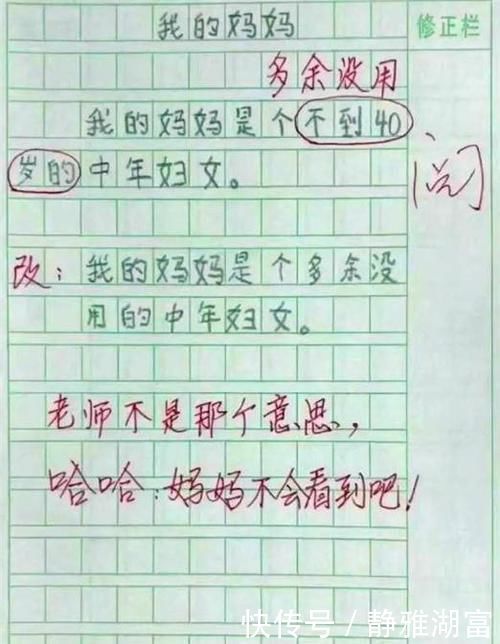 我的妈妈
修正栏
多余没用
我的妈妈是个不到40
岁的中年妇女。
阅
改：我的妈妈是个多余没
用的中年妇女。
老师不是那个意思，
哈哈：妈妈不会看到吧！
快传号／静雅湖富